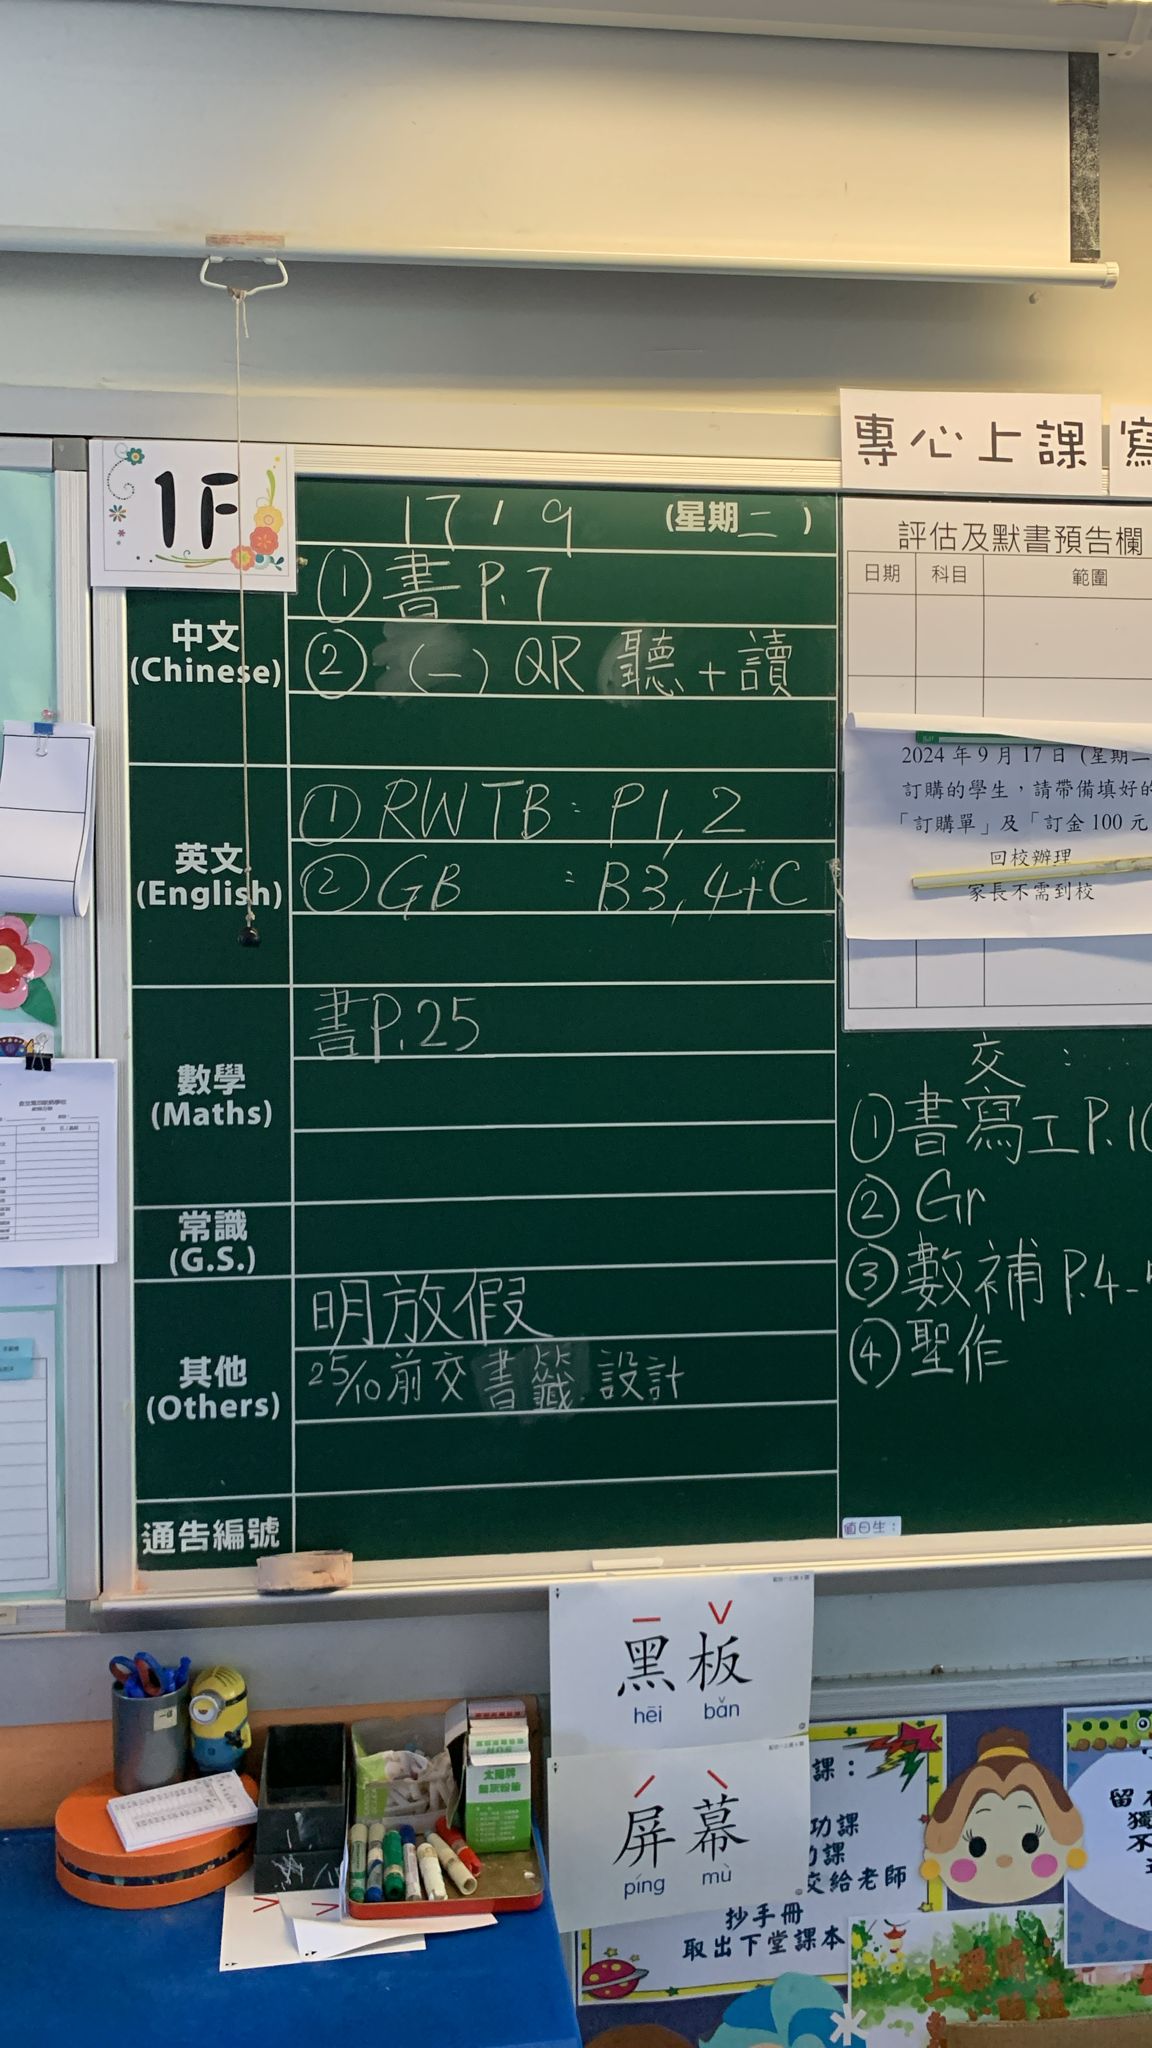 專心上課
1F
17 / 9 (星期二)
中文
(Chinese)
① 書 P.7
② (一) QR 聽+讀
英文
(English)
① RWTB : P1, 2
② GB : B3, 4+C
數學
(Maths)
書P.25
常識
(G.S.)
其他
(Others)
明放假
25/10前交書籤設計
通告編號
評估及默書預告欄
日期 科目 範圍
2024 年 9 月 17 日 (星期二
訂購的學生，請帶備填好的
「訂購單」及「訂金 100 元
回校辦理
家長不需到校
交 :
① 書寫工P.1
② Gr
③ 數補 P.4-
④ 聖作
值日生:
黑板
hēi bǎn
屏幕
píng mù
課：
功課
功課
交給老師
抄手冊
取出下堂課本